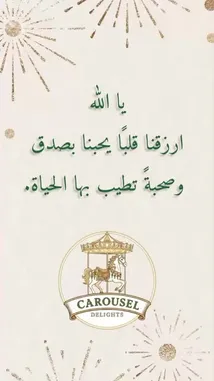 يا الله
ارزقنا قلبًا يحبنا بصدق
وصحبةً تطيب بها الحياة.
CAROUSEL
DELIGHTS